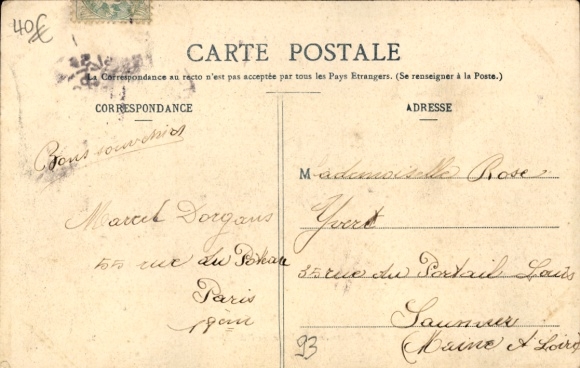 40€
CARTE POSTALE
La Correspondance au recto n'est pas acceptée par tous les Pays Etrangers. (Se renseigner à la Poste.)
CORRESPONDANCE
Bons souvenirs
Marcel Dorgans
55 rue du Poteau
Paris
ADRESSE
Mademoiselle Rose
Yvert
35 rue du Portail Louis
Saumur
(Maine & Loire)
93